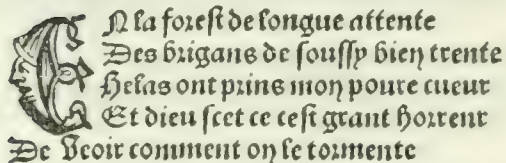 EN la foreſt de longue attente
Des brigans de ſouſſy bien trente
Helas ont prins mon poure cueur
Et dieu ſcet ce ceſt grant horreur
De veoir comment on le tormente